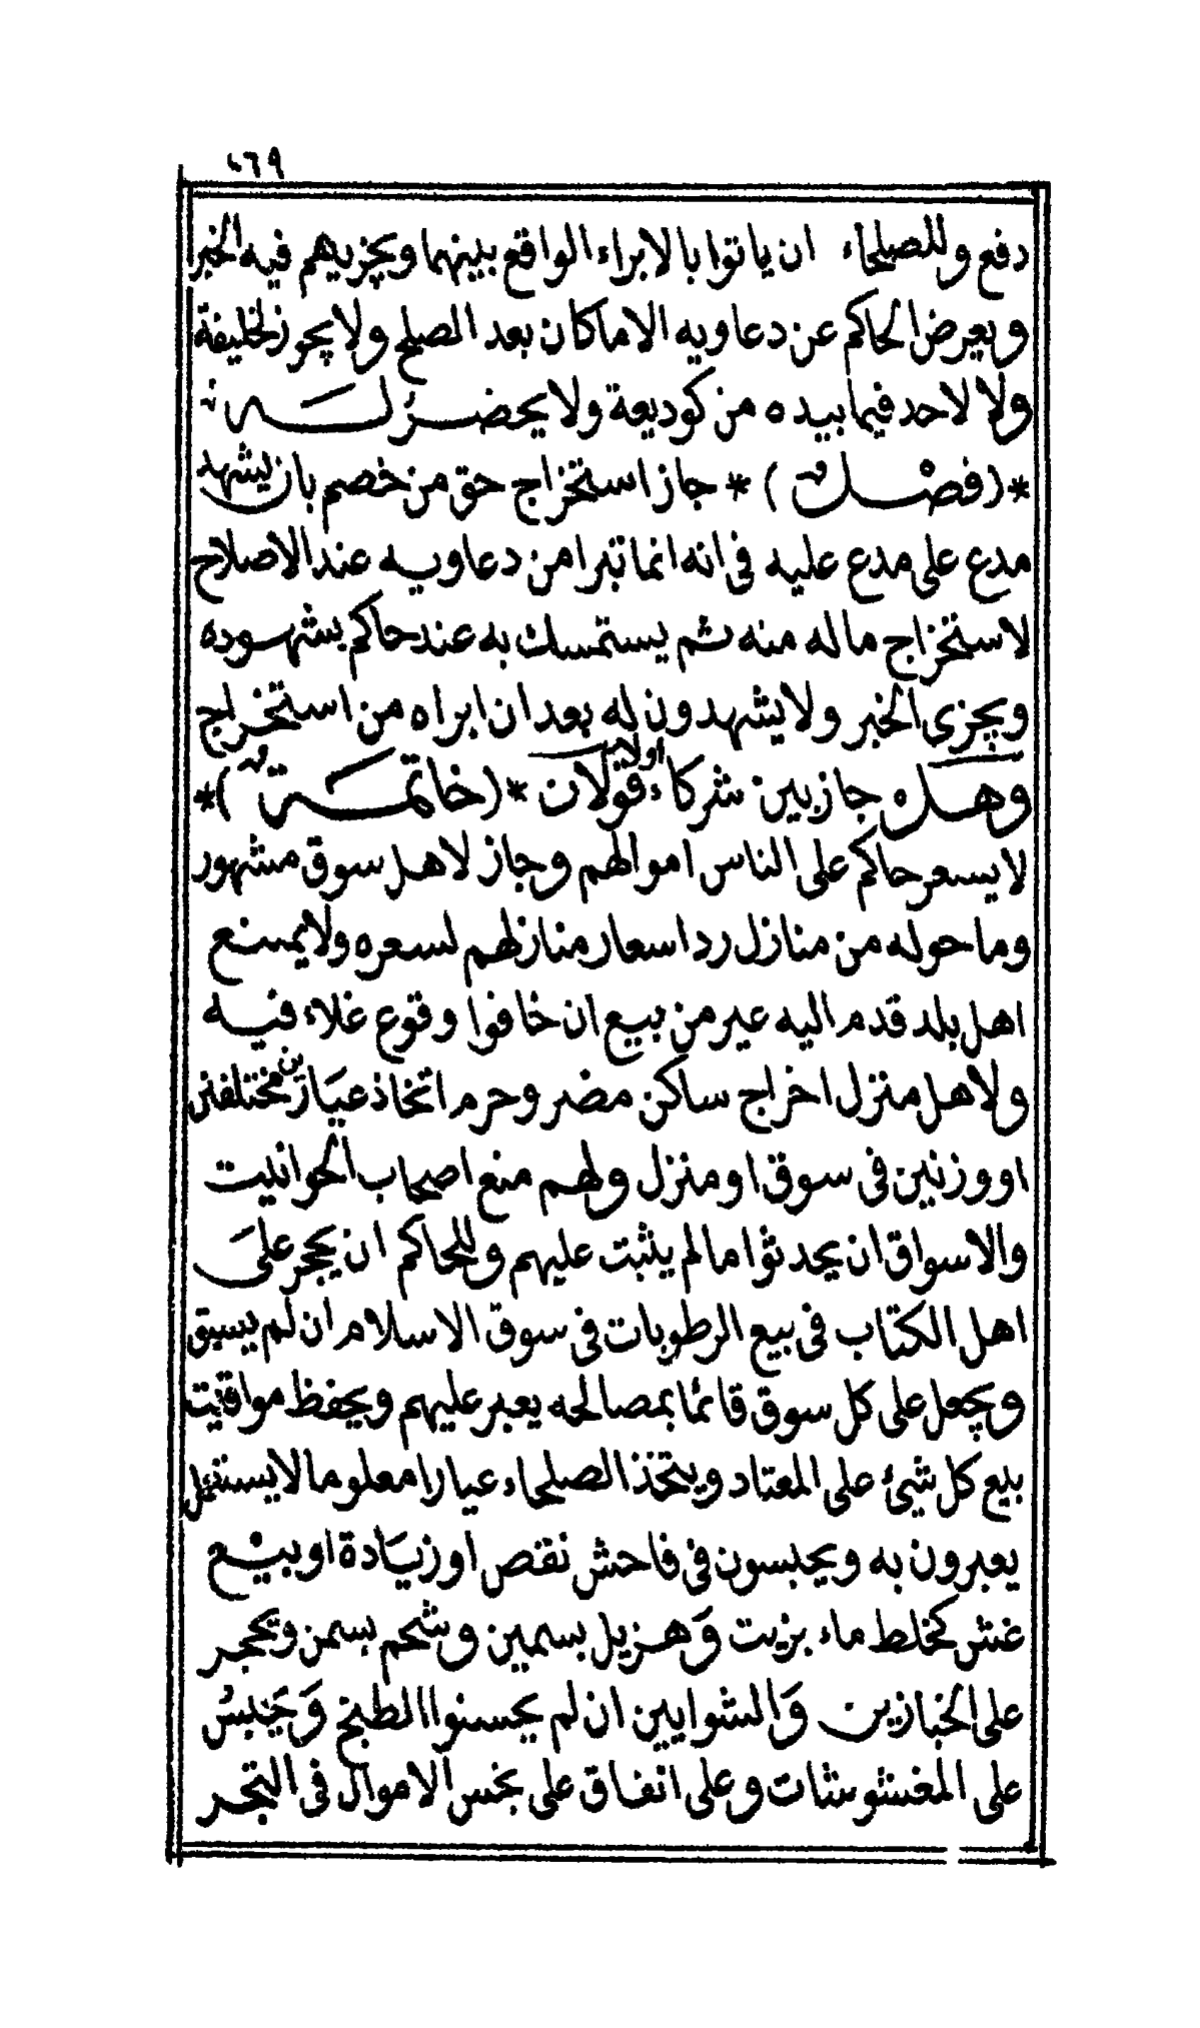 ٤٦٩
دفع وللصلحاء ان ياتوا بالابراء الواقع بينهما ويجزيهم فيه الخبر
ويعرض الحاكم عن دعاويه الا ما كان بعد الصلح ولا يجوز لخليفة
ولا لاحد فيما بيده من كوديعة ولا يحضر له
*(فصل)* جاز استخراج حق من خصم بان يشهد
مدع على مدع عليه فى انه انما تبرا من دعاويه عند الاصلاح
لاستخراج ماله منه ثم يستمسك به عند حاكم بشهوده
ويجزى الخبر ولا يشهدون له بعد ان ابراه من استخراج
وهل جاز بين شركاء اولا قولان *(خاتمة)*
لا يسعر حاكم على الناس اموالهم وجاز لاهل سوق مشهور
وما حوله من منازل رد اسعار منازلهم لسعره ولا يمنع
اهل بلد قدم اليه عير من بيع ان خافوا وقوع غلاء فيه
ولاهل منزل اخراج ساكن مضر وحرم اتخاذ عيارين مختلفين
او وزنين فى سوق او منزل ولهم منع اصحاب الحوانيت
والاسواق ان يحدثوا ما لم يثبت عليهم وللحاكم ان يحجر على
اهل الكتاب فى بيع الرطوبات فى سوق الاسلام ان لم يسبق
ويجعل على كل سوق قائما بمصالحه يعبر عليهم ويحفظ مواقيت
بيع كل شيئ على المعتاد ويتخذ الصلحاء عيارا معلوما لا يستنقل
يعبرون به ويحبسون فى فاحش نقص او زيادة او بيع
غش كخلط ماء بزيت وهزيل بسمين وشحم بسمن ويحجر
على الخبازين والشوايين ان لم يحسنوا الطبخ ويحبس
على المغشوشات وعلى انفاق على بخس الاموال فى التجر